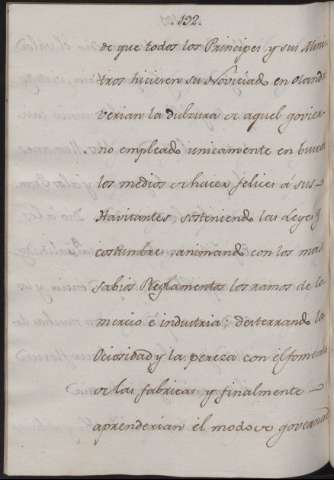 .192.
de que todos los Principes y sus Minis
tros hicieren su Noviciado en Oland
verian la dulzura de aquel govier
no empleado unicamente en buscar
los medios de hacer felices a sus
Havitantes, sosteniendo las Leyes y
costumbres, animando con los mas
Sabios Reglamentos los ramos de Co
mercio e industria; desterrando la
Ociosidad y la pereza con el fomento
de las fabricas y finalmente
aprenderian el modo de governar